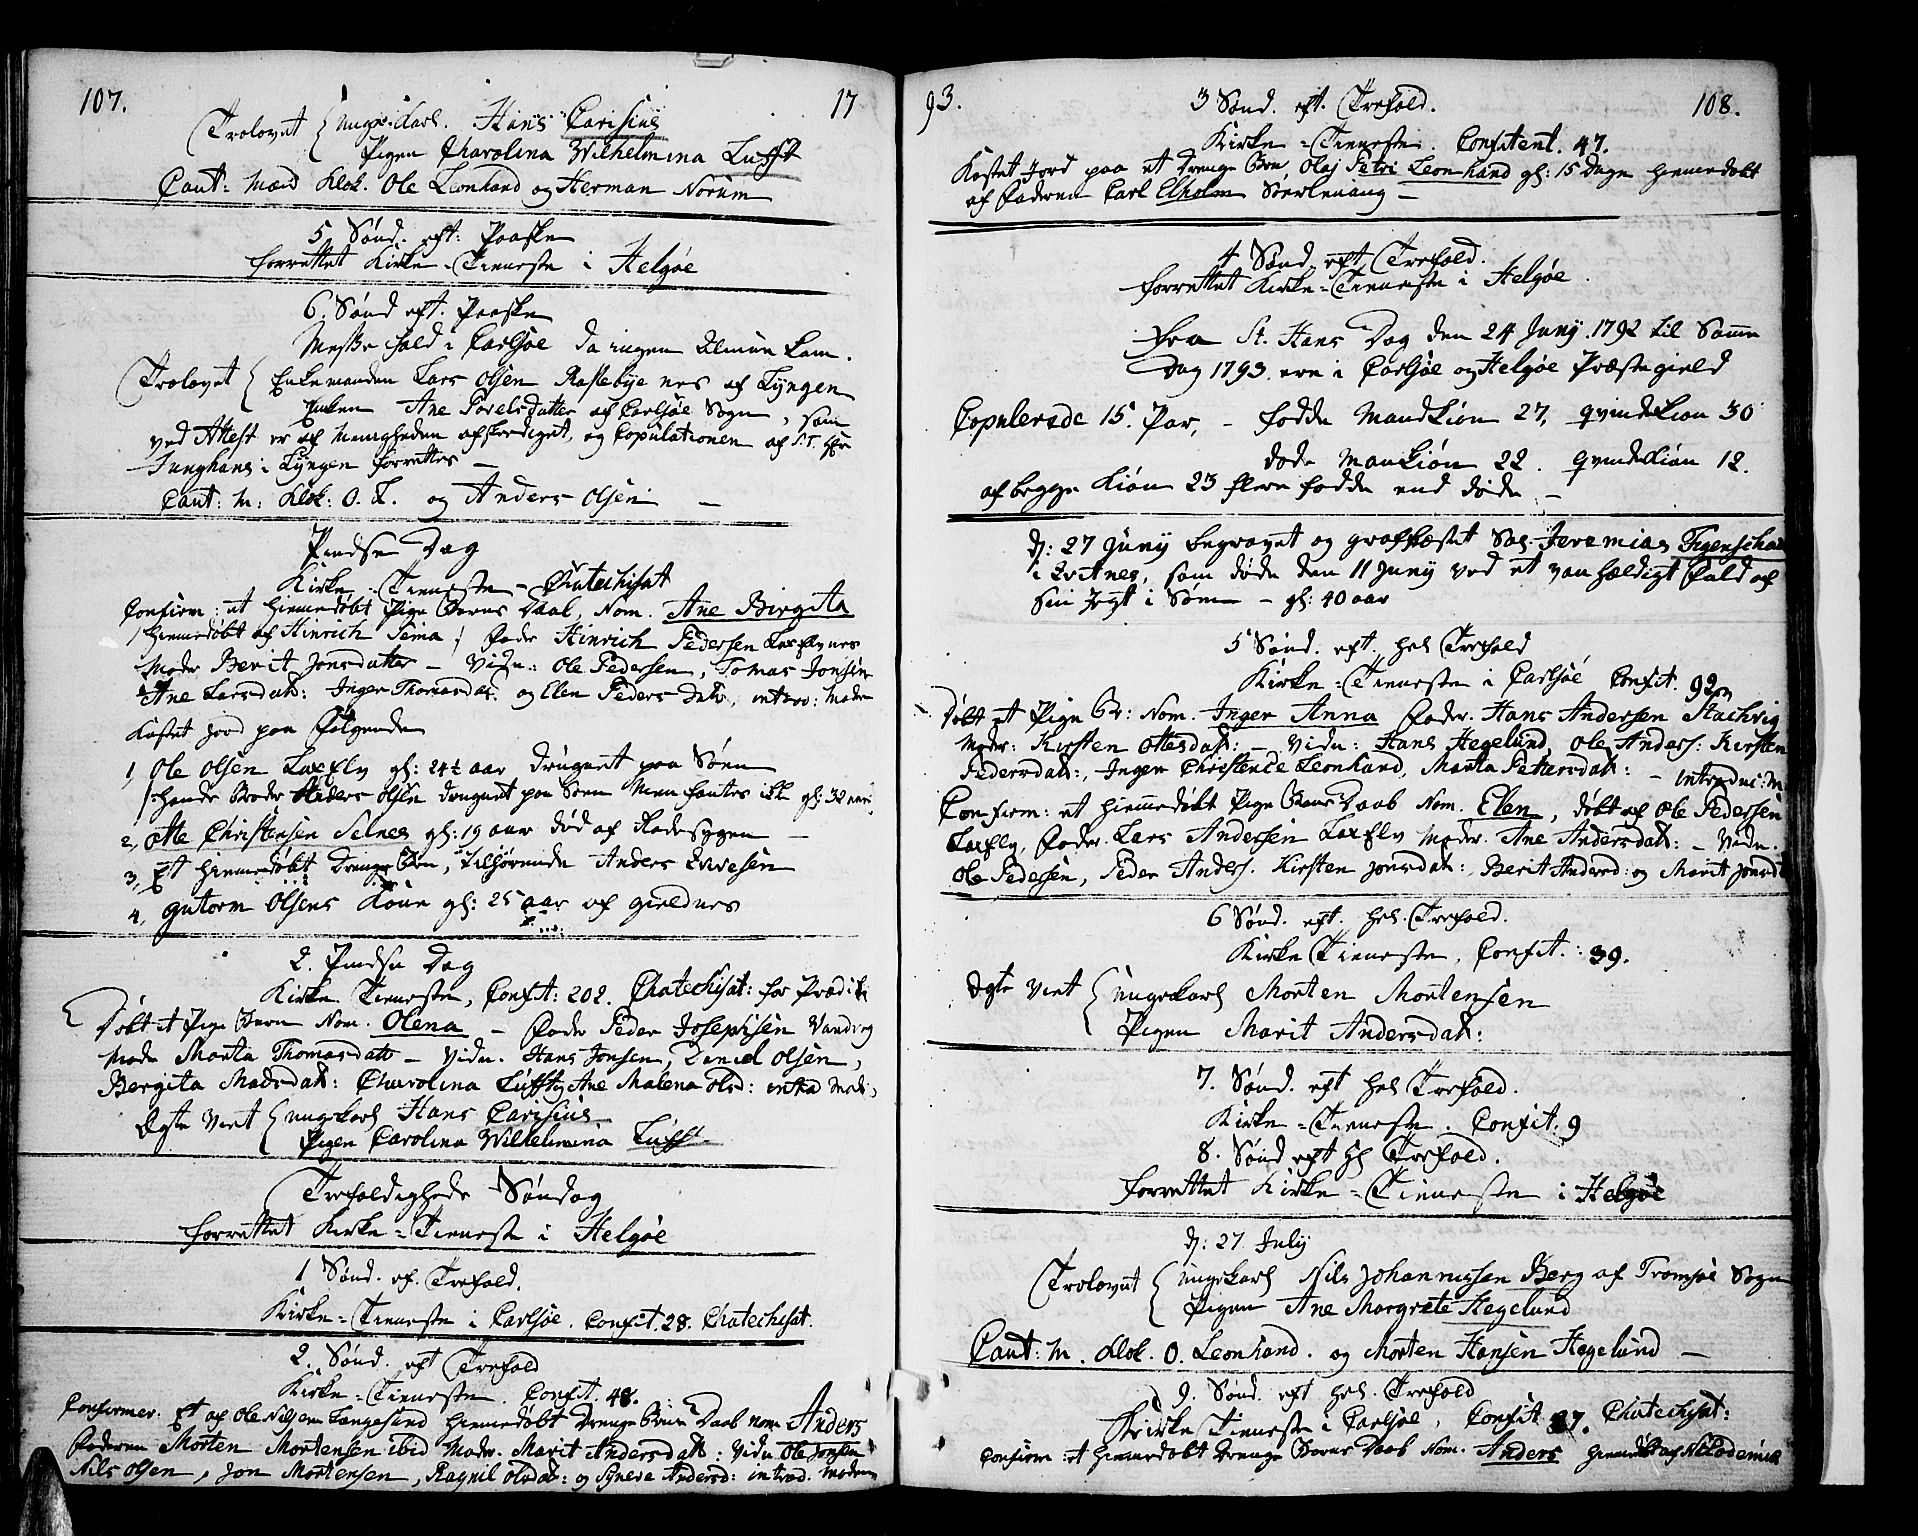 107.
17
Trolovet { Ungekarl. Hans Carisius
Pigen Charolina Wilhelmina Lufft
Caut: Mænd Klok. Ole Leonhard og Herman Norum
5 Sønd. eft: Paaske
forrettet Kirke-Tieneste i Helgøe
6. Sønd eft. Paaske
Messe fald i Carlsøe da ingen Almue kom.
Trolovet { Enkemanden Lars Olsen Rastebye nes af Lyngen
Enken Ane Povelsdatter af Carlsøe Sogn, som
ved Attest er af Menigheden afskediget, og Copulationen af S.T. Hr
Junghans i Lyngen forrettes —
Caut: M: Klok: O. L. og Anders Olsen —
Pindse Dag
Kirke-Tieneste - Chatechisat
Confirm: et hiemmedøbt Pige Barns Daab, Nom. Ane Birgita
/hiemmedøbt af Hinrich Seima/ Fader Hinrich Pedersen Laxflvnes
Moder Berit Jonsdatter — Vidn: Ole Pedersen, Tomas Jonsen
Ane Larsdat: Inger Thomasdat. og Elen Peders Datr, introd: Moder
Kastet Jord paa Følgende
1, Ole Olsen Laxflv gl: 24½ aar druknet paa Søen
/: hands Broder Anders Olsen druknet paa Søen Men fantes ikk gl: 32 aar
2, Otte Christensen Selnes gl: 19 aar død af Radesygen —
3, Et hiemmedøbt Drenge Barn, tilhørende Anders Evesen
4, Gutorm Olsens Kone gl: 25 aar af Gieldnes
2. Pindse Dag
Kirke Tieneste, Confit: 202. Chatechisat: for Prædike
Døbt et Pige Barn Nom. Olena — Fader Peder Josephsen Vandvog
Mode Marta Thomasdatt — Vidn. Hans Jonsen, Daniel Olsen,
Bergita Madsdat: Charolina Lufft og Ane Malena Olsd: intro Mod:
Egte Viet { Ungekarl Hans Carisius
Pigen Carolina Wilhelmina Lufft
Trefoldigheds Søndag
forrettet Kirke-Tieneste i Helgøe
1 Sønd. ef. Trefold.
Kirke-Tieneste i Carlsøe. Confit. 28. Chatechisat.
2. Sønd. eft Trefold
Kirke-Tieneste. Confit. 48.
Confirmer. Et af Ole Nilsen Langesund hiemmedøbt Drenge Barns Daab nom Anders
Faderen Morten Mortensen ibid Moder. Marit Andersdatt: Vidn Ole Jonsen
Nils Olsen, Jon Mortensen, Ragnil Olsdat: og Syneva Andersd: introd. Moderen
93.
108.
3 Sønd. eft. Trefold.
Kirke-Tieneste. Confitent. 47.
Kastet Jord paa et Drenge Barn, Olaj Petri Leonhard gl: 15 Dage hiemmedøbt
af Faderen Carl Elholm —
4 Sønd eft Trefold.
forrettet Kirke-Tieneste i Helgøe.
fra St. Hans Dag den 24 Junÿ 1792 til Samme
Dag 1793. ere i Carlsøe og Helgøe Præstegield
Copulerede 15. Par, — fødde Mandkiøn 27, qvindekiøn 30
døde Mankiøn 22. Qvindekiøn 12.
af begge Kiøn 23 flere fødde end døde —
d: 27 Junÿ begravet og grafkastet Sal. Jeremias Figenschau
i Evitnes, som døde den 11 Junÿ ved et vanhældigt Fald af
Sin Jægt i Søen — gl: 40 aar
5 Sønd. eft. hel Trefold
Kirke-Tieneste i Carlsøe Confit. 92
Døbt et Pige Br: Nom. Inger Anna Fader. Hans Andersen Stachvig
Moder: Kirsten Ottesdatt: — Vidn: Hans Hegelund, Ole Anders: Kirsten
Pedersdat:, Inger Christence Leonhard, Marta Pettersdat: — introduc: M
Confirm: et hiemmedøbt Pige Barns Daab Nom. Elen, døbt af Ole Pedersen
Laxflv, Fader Lars Andersen Laxflv Moder. Ane Andersdat: — Vidn.
Ole Pedersen, Peder Anders. Kirsten Jonsdat: Berit Andersd: og Marit Jonsdt
6 Sønd. eft. hel. Trefold.
Kirke Tieneste, Confit.: 39.
Egte Viet { Ungekarl Morten Mortensen
Pigen Marit Andersdat:
7. Sønd. eft hel Trefold.
Kirke-Tieneste. Confit. 9
8. Sønd eft hl Trefold.
forrettet Kirke-Tieneste i Helgøe
d: 27 July
Trolovet { Ungekarl Nils Johannesen Berg af Tromsøe Sogn
Pigen Ane Margrete Hegelund
Caut: M. Klok. O. Leonhard. og Morten Hansen Hegelund —
9. Sønd. eft hel. Trefold
Kirke Tieneste i Carlsøe, Confit 37. Chatechisat:
Confirm: et hiemmedøbt Drenge Barns Daab Nom. Anders hiemmedøbt af Nicodemus